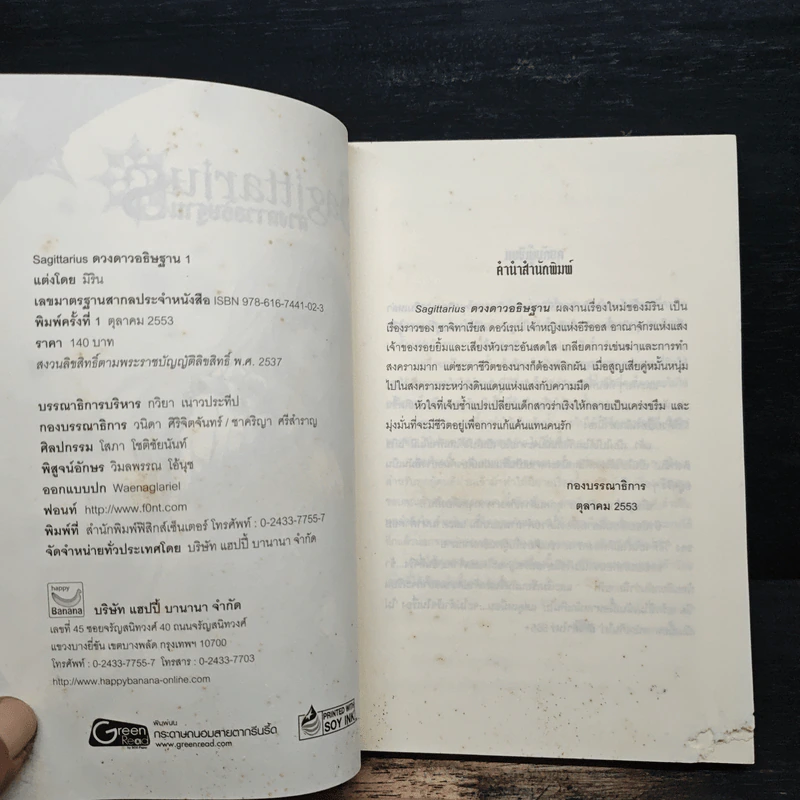 Sagittarius
ดวงดาวอธิษฐาน
Sagittarius ดวงดาวอธิษฐาน 1
แต่งโดย มิริน
เลขมาตรฐานสากลประจำหนังสือ ISBN 978-616-7441-02-3
พิมพ์ครั้งที่ 1 ตุลาคม 2553
ราคา 140 บาท
สงวนลิขสิทธิ์ตามพระราชบัญญัติลิขสิทธิ์ พ.ศ. 2537
บรรณาธิการบริหาร กวิยา เนาวประทีป
กองบรรณาธิการ วนิดา ศิริจิตจันทร์ / ชาคริญา ศรีสำราญ
ศิลปกรรม โสภา โชติชัยนันท์
พิสูจน์อักษร วิมลพรรณ โอ้นุช
ออกแบบปก Waenaglariel
ฟอนท์ http://www.f0nt.com
พิมพ์ที่ สำนักพิมพ์ฟิสิกส์เซ็นเตอร์ โทรศัพท์ : 0-2433-7755-7
จัดจำหน่ายทั่วประเทศโดย บริษัท แฮปปี้ บานานา จำกัด
happy
Banana
บริษัท แฮปปี้ บานานา จำกัด
เลขที่ 45 ซอยจรัญสนิทวงศ์ 40 ถนนจรัญสนิทวงศ์
แขวงบางยี่ขัน เขตบางพลัด กรุงเทพฯ 10700
โทรศัพท์ : 0-2433-7755-7 โทรสาร : 0-2433-7703
http://www.happybanana-online.com
Green
Read
พิมพ์บน
กระดาษถนอมสายตากรีนรี้ด
www.greenread.com
PRINTED WITH
SOY INK
คำนำสำนักพิมพ์
Sagittarius ดวงดาวอธิษฐาน ผลงานเรื่องใหม่ของมิริน เป็น
เรื่องราวของ ซาจิทาเรียส ดอว์เรเน่ เจ้าหญิงแห่งอีริออส อาณาจักรแห่งแสง
เจ้าของรอยยิ้มและเสียงหัวเราะอันสดใส เกลียดการเข่นฆ่าและการทำ
สงครามมาก แต่ชะตาชีวิตของนางก็ต้องพลิกผัน เมื่อสูญเสียคู่หมั้นหนุ่ม
ไปในสงครามระหว่างดินแดนแห่งแสงกับความมืด
หัวใจที่เจ็บช้ำแปรเปลี่ยนเด็กสาวร่าเริงให้กลายเป็นเคร่งขรึม และ
มุ่งมั่นที่จะมีชีวิตอยู่เพื่อการแก้แค้นแทนคนรัก
กองบรรณาธิการ
ตุลาคม 2553